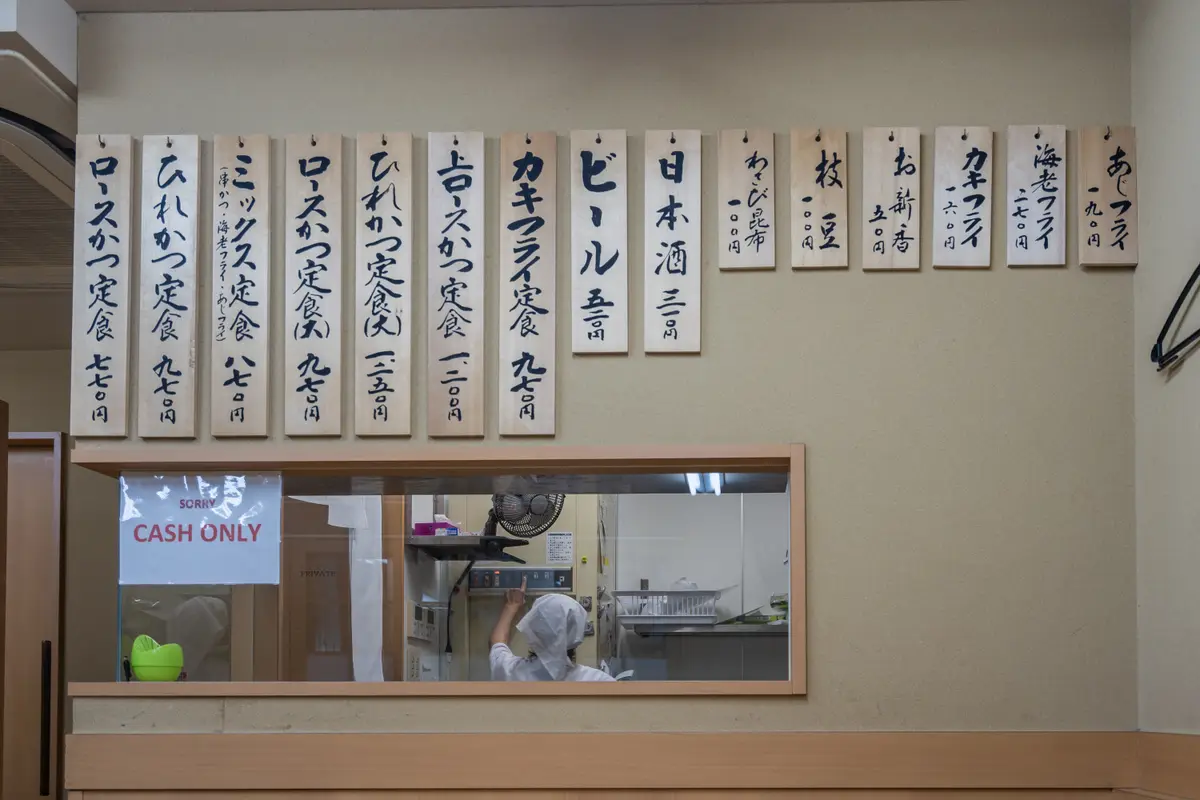 ロースかつ定食 七七〇円
ひれかつ定食 九七〇円
ミックス定食 八七〇円
(串かつ・海老フライ・あじフライ)
ロースかつ定食(大) 九七〇円
ひれかつ定食(大) 一、二五〇円
上ロースかつ定食
カキフライ定食 九七〇円
ビール
日本酒 三一〇円
わさび昆布 一〇〇円
枝豆 一〇〇円
お新香 五〇円
カキフライ 一六〇円
海老フライ 二七〇円
あじフライ 一九〇円
SORRY
CASH ONLY